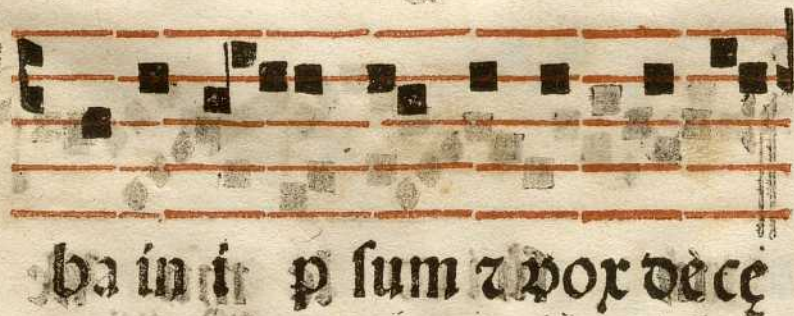 ba in i p sum ⁊ vox de cę